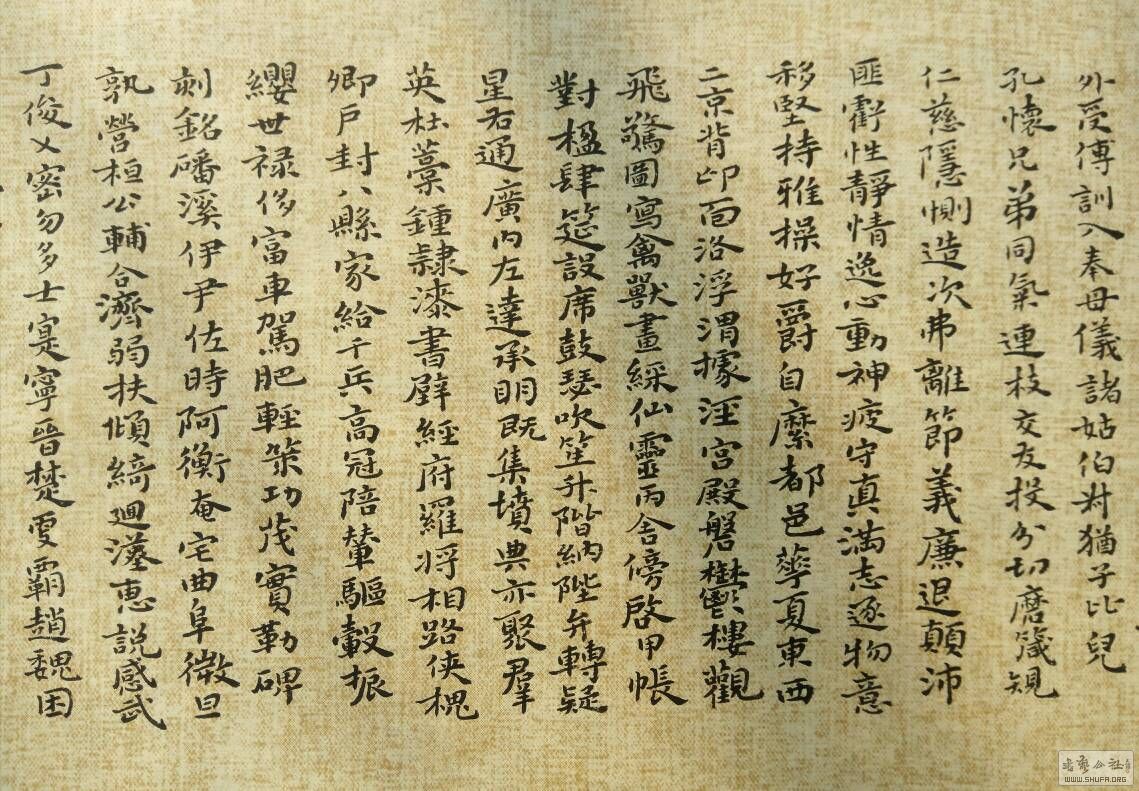 外受傅訓入奉母儀諸姑伯叔猶子比兒
孔懷兄弟同氣連枝交友投分切磨箴規
仁慈隱惻造次弗離節義廉退顛沛
匪虧性靜情逸心動神疲守真滿志逐物意
移堅持雅操好爵自縻都邑華夏東西
二京背邙面洛浮渭據涇宮殿磐鬱樓觀
飛驚圖寫禽獸畫綵仙靈丙舍傍啓甲帳
對楹肆筵設席鼓瑟吹笙升階納陛弁轉疑
星右通廣内左達承明既集墳典亦聚羣
英杜藁鍾隸漆書壁經府羅將相路俠槐
卿戶封八縣家給千兵高冠陪輦驅轂振
纓世禄侈富車駕肥輕策功茂實勒碑
刻銘磻溪伊尹佐時阿衡奄宅曲阜微旦
孰營桓公輔合濟弱扶傾綺迴漢惠説感武
丁俊乂密勿多士寔寧晉楚更霸趙魏困
WWW.SHUFA.ORG